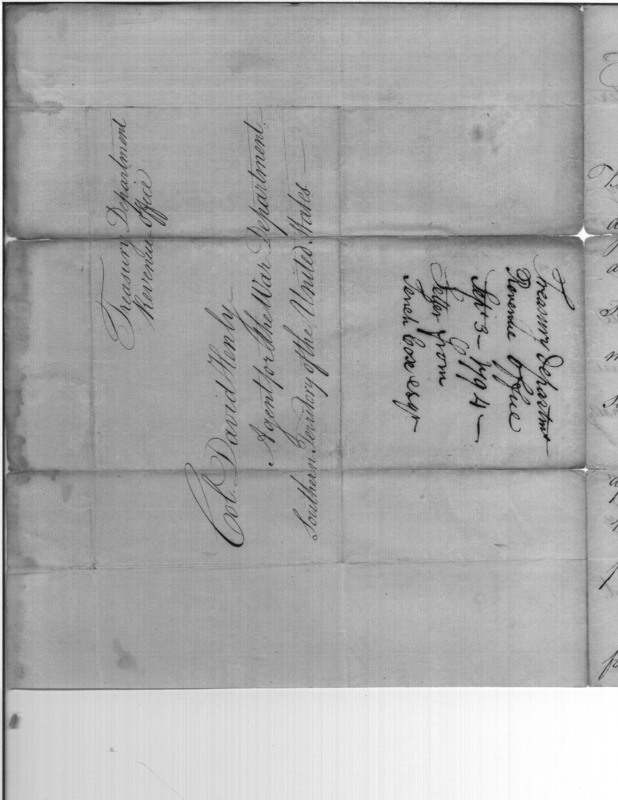 Treasury Department
Revenue Office
Col. David Henly
Agent for the War Department
Southern Territory of the United States
Treasury Departmt
Revenue Office
Sept 3 - 1794 -
Letter from
Tench Coxe esqr